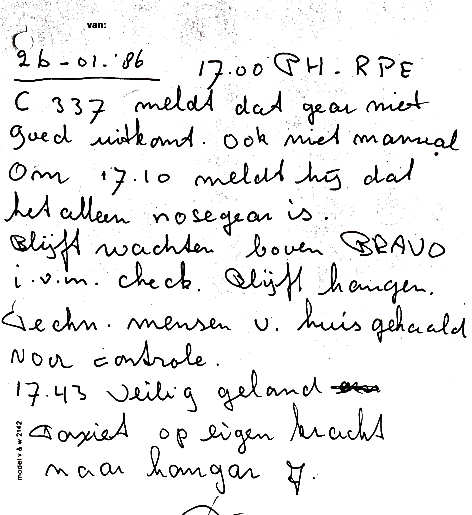 van:
26-01.'86 17.00 PH-RPE
C 337 meldt dat gear niet
goed uitkomt. Ook niet manual
Om 17.10 meldt hij dat
het alleen nosegear is.
Blijft wachten boven BRAVO
i.v.m. check. Blijft hangen.
Techn. mensen v. huis gehaald
voor controle.
17.43 Veilig geland
Taxiet op eigen kracht
naar hangar 7.
model v & w 2142